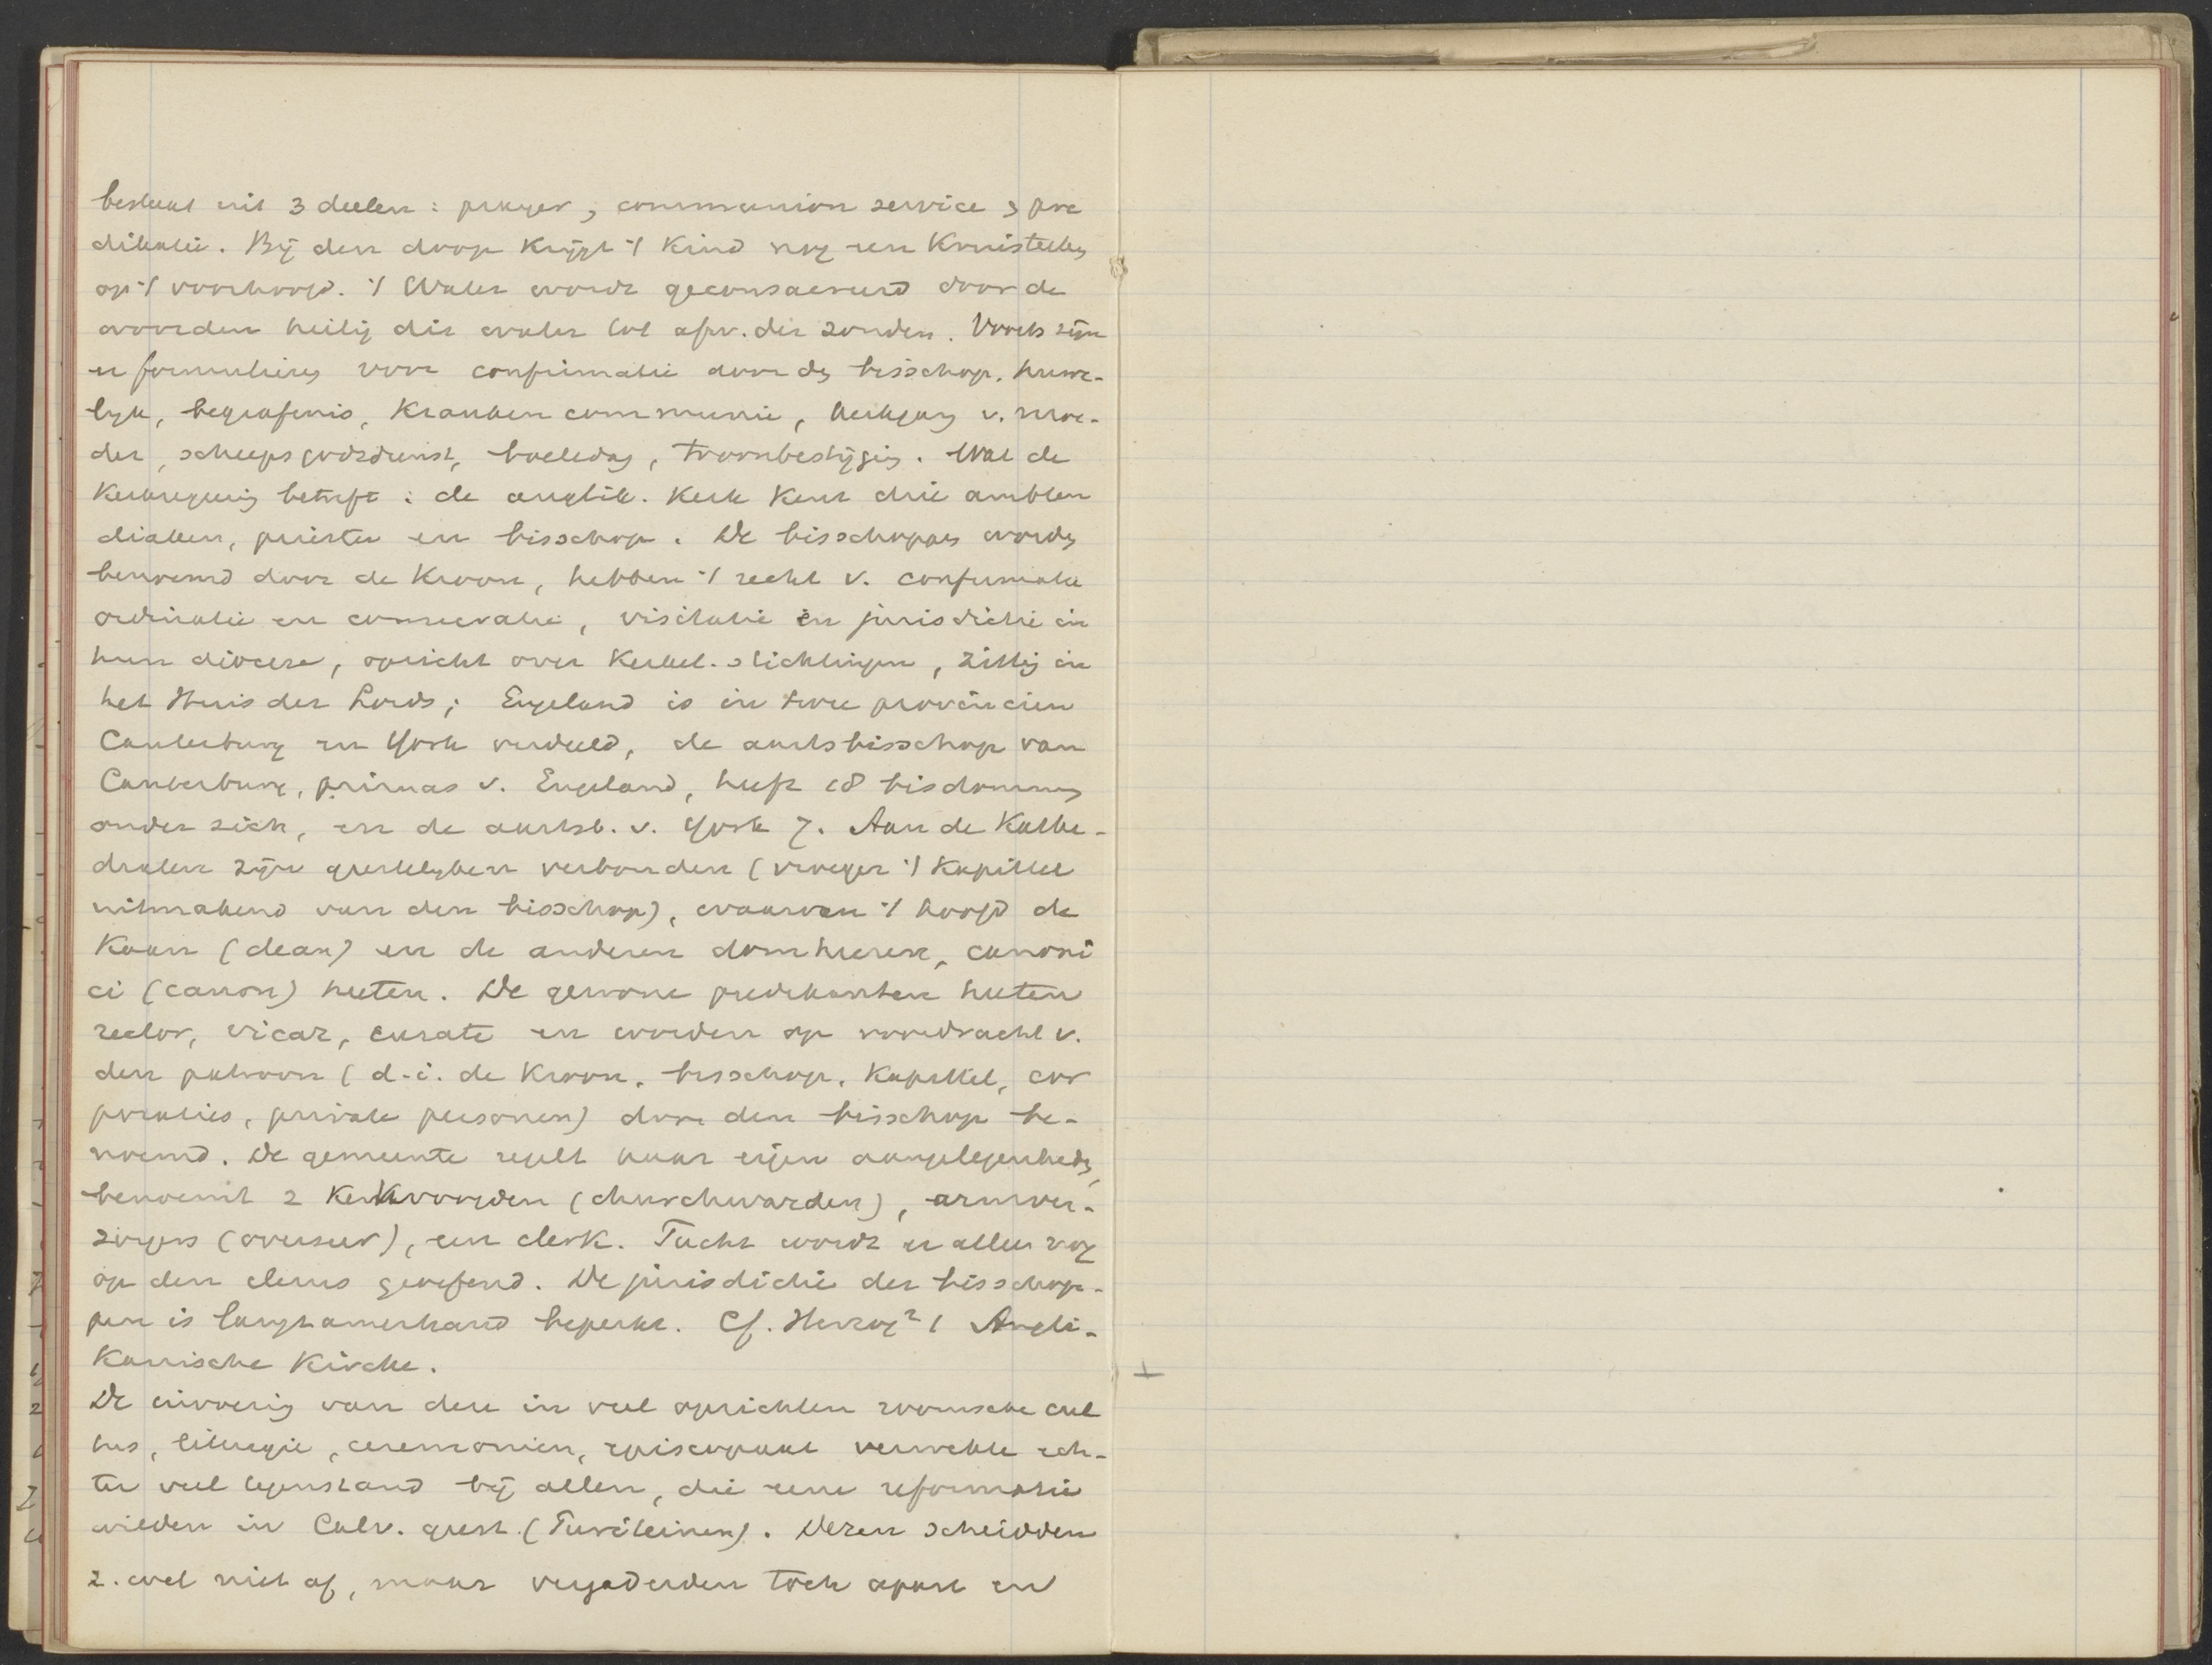 bestaat uit 3 deelen: prayer, communion service, pre
dikatie. Bij den doop krijgt 't kind nog een kruisteeken
op 't voorhoofd. 't Water wordt geconsacreerd door de
woorden heilig dit water tot afw. der zonden. Voorts zijn
er formulieren voor confirmatie door den bisschop, huwe-
lijk, begrafenis, kranken communie, kerkgang v. moe-
der, scheepsgodsdienst, boetedag, troonbestijging. Wat de
Kerkregeering betreft: de anglik. Kerk kent drie ambten
diaken, priester en bisschop. De bisschoppen worden
benoemd door de Kroon, hebben 't recht v. confirmatie
ordinatie en consecratie, visitatie en jurisdictie in
hun diocese, opzicht over Kerkel. stichtingen, zitting in
het Huis der Lords; Engeland is in twee provinciën
Canterbury en York verdeeld, de aartsbisschop van
Canterbury, primas v. Engeland, heeft 28 bisdommen
onder zich, en de aartsb. v. York 7. Aan de Kathe-
dralen zijn geestelijken verbonden (vroeger 't Kapittel
uitmakend van den bisschop), waarvan 't hoofd de
Kaan (dean) en de anderen domheeren, canoni
ci (canon) heeten. De gewone predikanten heeten
rector, vicar, curate en worden op voordracht v.
den patroon (d.i. de Kroon, bisschop, Kapittel, cor
poraties, private personen) door den bisschop be-
noemd. De gemeente regelt haar eigen aangelegenheden,
benoemt 2 Kerkvoogden (churchwarden), armver-
zorgers (overseer), een clerk. Tucht wordt er alleen nog
op den clerus geoefend. De jurisdictie der bisschop-
pen is langzamerhand beperkt. Cf. Herzog² 1 Angli-
kanische Kirche.
De invoering van den in veel opzichten roomsche cul
tus, liturgie, ceremoniën, episcopaat verwekte ech-
ter veel tegenstand bij allen, die eene reformatie
wilden in Calv. geest (Puriteinen). Dezen scheidden
z. wel niet af, maar vergaderden toch apart en